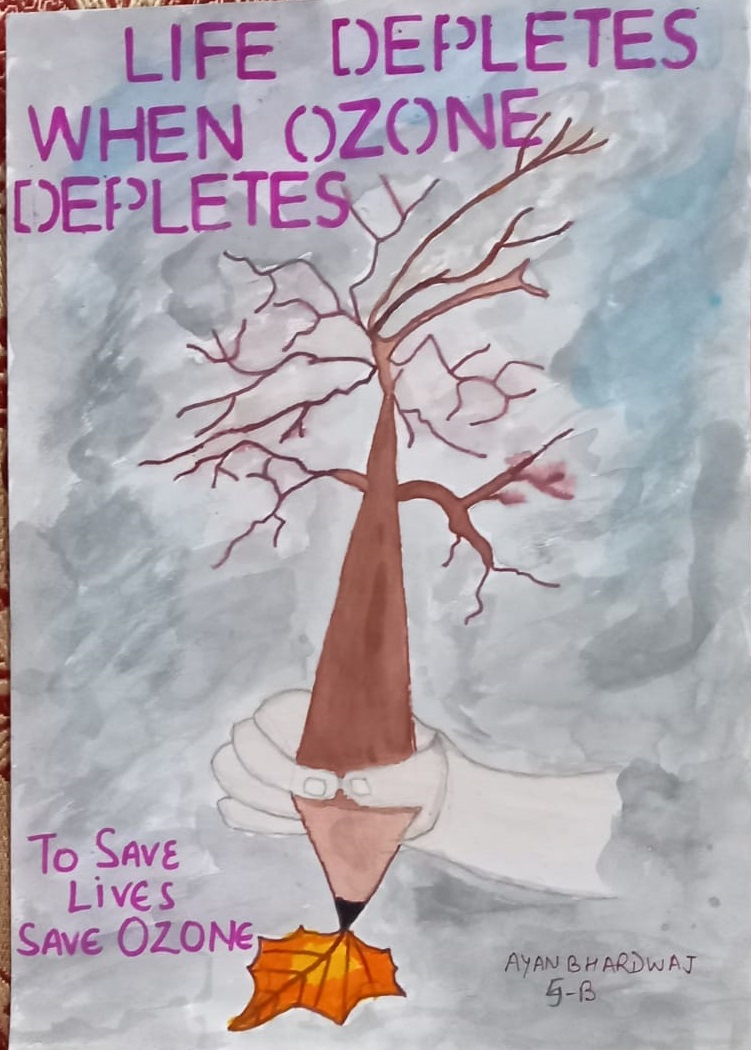 LIFE DEPLETES
WHEN OZONE
DEPLETES
To SAVE
LiVES
SAVE OZONE
AYAN BHARDWAJ
5-B